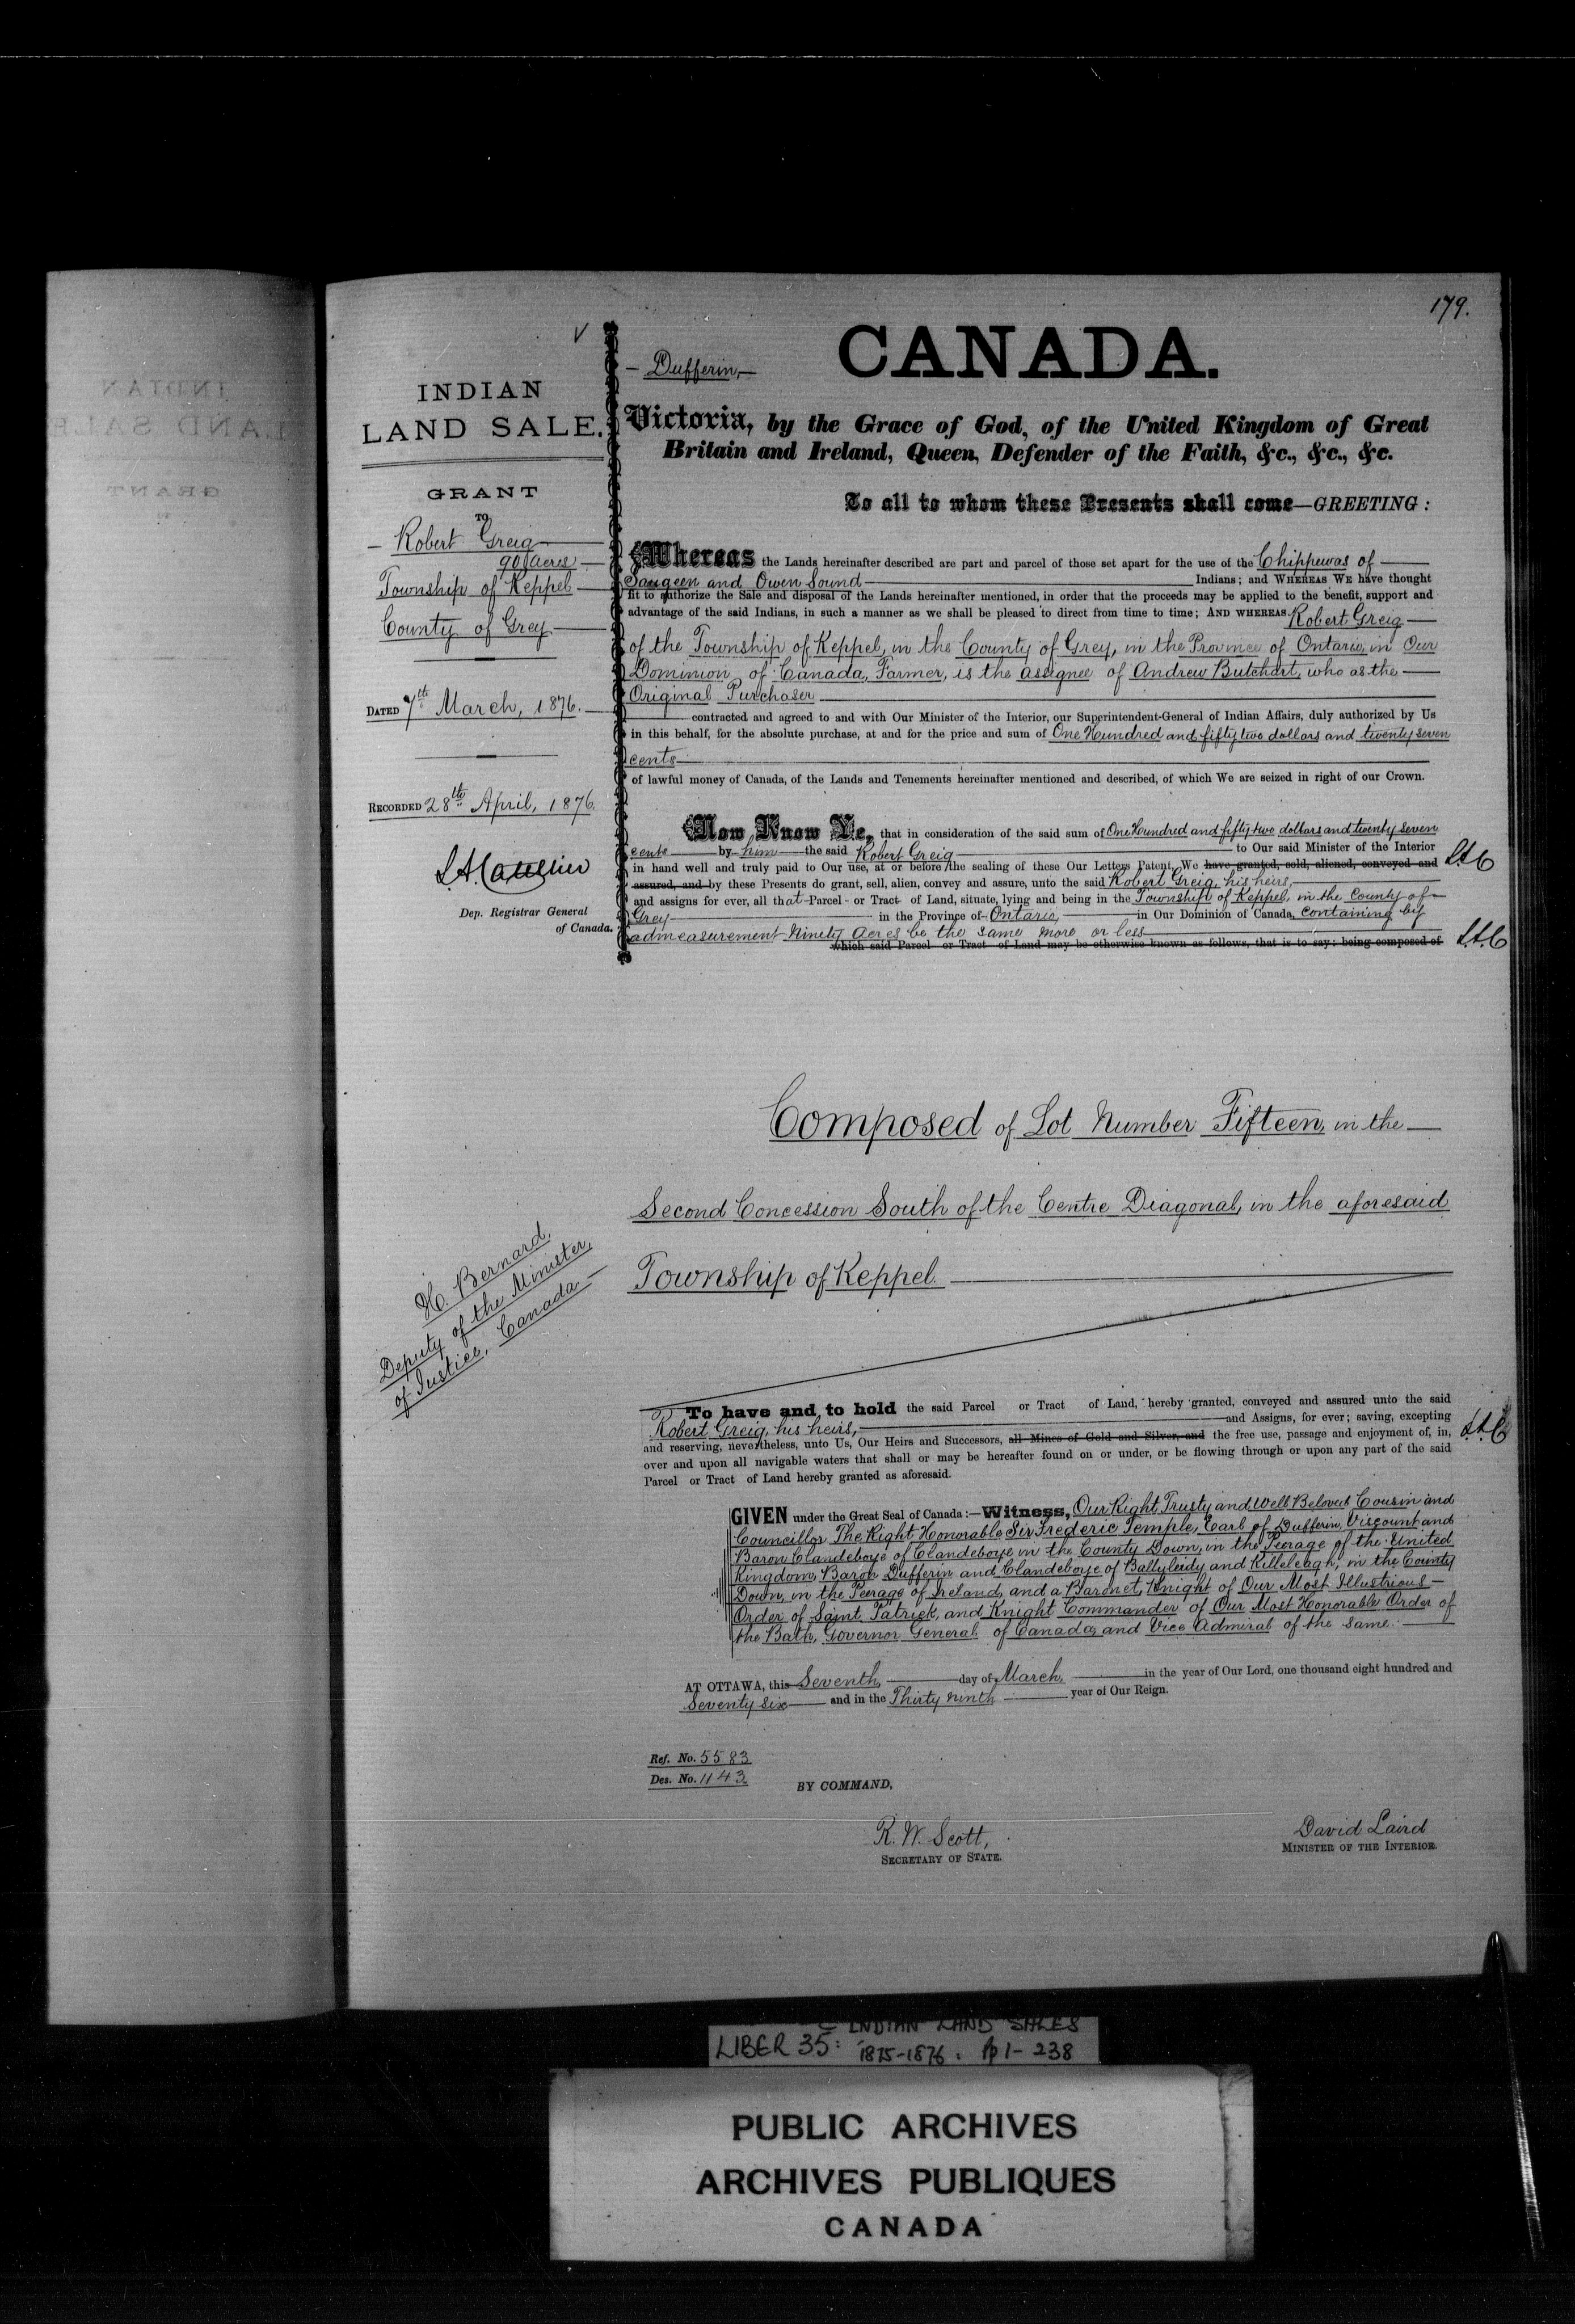 179.
CANADA.
— Dufferin, —
INDIAN
LAND SALE.
GRANT
TO
— Robert Greig —
90 Acres —
Township of Keppel —
County of Grey —
DATED 7th March, 1876. —
RECORDED 28th April, 1876.
Dep. Registrar General
of Canada.
H. Bernard,
Deputy of the Minister,
of Justice, Canada —
Victoria, by the Grace of God, of the United Kingdom of Great
Britain and Ireland, Queen, Defender of the Faith, &c., &c., &c.
To all to whom these Presents shall come—GREETING :
Whereas the Lands hereinafter described are part and parcel of those set apart for the use of the Chippewas of —
Saugeen and Owen Sound — Indians; and WHEREAS WE have thought
fit to authorize the Sale and disposal of the Lands hereinafter mentioned, in order that the proceeds may be applied to the benefit, support and
advantage of the said Indians, in such a manner as we shall be pleased to direct from time to time; AND WHEREAS Robert Greig —
of the Township of Keppel, in the County of Grey, in the Province of Ontario, in Our
Dominion of Canada, Farmer, is the assignee of Andrew Butchart, who as the —
Original Purchaser —
— contracted and agreed to and with Our Minister of the Interior, our Superintendent-General of Indian Affairs, duly authorized by Us
in this behalf, for the absolute purchase, at and for the price and sum of One Hundred and fifty two dollars and twenty seven
cents —
of lawful money of Canada, of the Lands and Tenements hereinafter mentioned and described, of which We are seized in right of our Crown.
Now Know Ye, that in consideration of the said sum of One Hundred and fifty two dollars and twenty seven
cents — by him — the said Robert Greig — to Our said Minister of the Interior
in hand well and truly paid to Our use, at or before the sealing of these Our Letters Patent, We have granted, sold, aliened, conveyed and
assured, and by these Presents do grant, sell, alien, convey and assure, unto the said Robert Greig, his heirs, —
and assigns for ever, all that Parcel - or Tract - of Land, situate, lying and being in the Township of Keppel, in the County of —
Grey — in the Province of Ontario, — in Our Dominion of Canada, containing by
admeasurement Ninety Acres be the same more or less —
which said Parcel or Tract of Land may be otherwise known as follows, that is to say: being composed of
Composed of Lot Number Fifteen, in the —
Second Concession South of the Centre Diagonal, in the aforesaid
Township of Keppel. —
To have and to hold the said Parcel or Tract of Land, hereby granted, conveyed and assured unto the said
Robert Greig, his heirs, — and Assigns, for ever; saving, excepting
and reserving, nevertheless, unto Us, Our Heirs and Successors, all Mines of Gold and Silver, and the free use, passage and enjoyment of, in,
over and upon all navigable waters that shall or may be hereafter found on or under, or be flowing through or upon any part of the said
Parcel or Tract of Land hereby granted as aforesaid.
GIVEN under the Great Seal of Canada :—Witness, Our Right Trusty and Well Beloved Cousin and
Councillor The Right Honorable Sir Frederic Temple, Earl of Dufferin, Viscount and
Baron Clandeboye of Clandeboye in the County Down, in the Peerage of the United
Kingdom, Baron Dufferin and Clandeboye of Ballyleidy and Killeleagh, in the County
Down, in the Peerage of Ireland, and a Baronet, Knight of Our Most Illustrious —
Order of Saint Patrick, and Knight Commander of Our Most Honorable Order of
the Bath, Governor General of Canada, and Vice Admiral of the same. —
AT OTTAWA, this Seventh — day of March, — in the year of Our Lord, one thousand eight hundred and
Seventy six — and in the Thirty ninth — year of Our Reign.
Ref. No. 5583.
Des. No. 1143.
BY COMMAND,
R. W. Scott,
SECRETARY OF STATE.
David Laird
MINISTER OF THE INTERIOR.
INDIAN LAND SALES
LIBER 35: 1875-1876: pp 1-238
PUBLIC ARCHIVES
ARCHIVES PUBLIQUES
CANADA